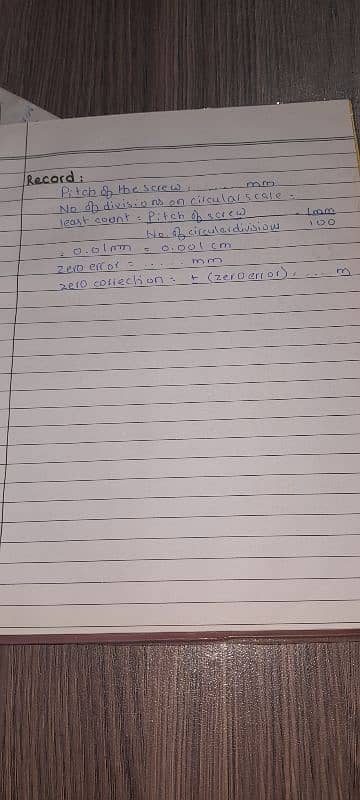 Record:
Pitch of the screw. ..... mm
No of divisions on circular scale.
least count = Pitch of screw = 1mm
No of circular divisiow 100
= 0.01mm = 0.001 cm
zero error = ..... mm
zero collection = ± (zero error). .... m